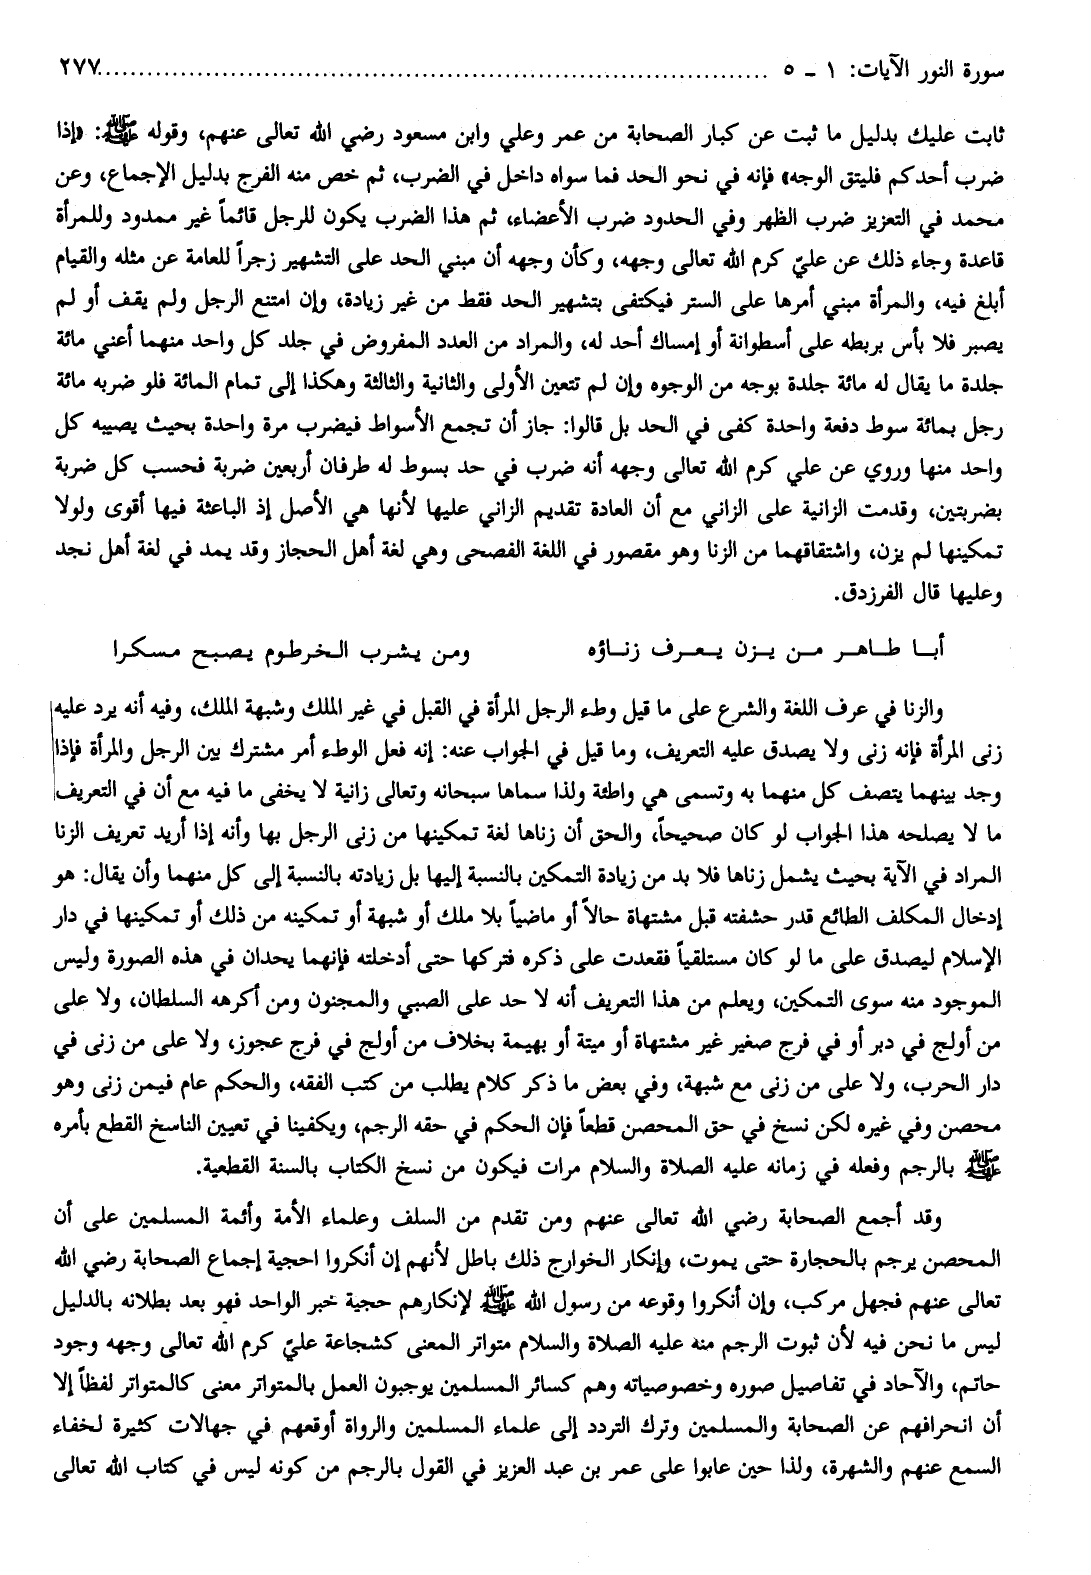 سورة النور الآيات: ١ - ٥ ........................................................................ ٢٧٧
ثابت عليك بدليل ما ثبت عن كبار الصحابة من عمر وعلي وابن مسعود رضي الله تعالى عنهم، وقوله ﷺ: «إذا
ضرب أحدكم فليتق الوجه» فإنه في نحو الحد فما سواه داخل في الضرب، ثم خص منه الفرج بدليل الإجماع، وعن
محمد في التعزيز ضرب الظهر وفي الحدود ضرب الأعضاء، ثم هذا الضرب يكون للرجل قائماً غير ممدود وللمرأة
قاعدة وجاء ذلك عن عليّ كرم الله تعالى وجهه، وكأن وجهه أن مبني الحد على التشهير زجراً للعامة عن مثله والقيام
أبلغ فيه، والمرأة مبني أمرها على الستر فيكتفى بتشهير الحد فقط من غير زيادة، وإن امتنع الرجل ولم يقف أو لم
يصبر فلا بأس بربطه على أسطوانة أو إمساك أحد له، والمراد من العدد المفروض في جلد كل واحد منهما أعني مائة
جلدة ما يقال له مائة جلدة بوجه من الوجوه وإن لم تتعين الأولى والثانية والثالثة وهكذا إلى تمام المائة فلو ضربه مائة
رجل بمائة سوط دفعة واحدة كفى في الحد بل قالوا: جاز أن تجمع الأسواط فيضرب مرة واحدة بحيث يصيبه كل
واحد منها وروي عن علي كرم الله تعالى وجهه أنه ضرب في حد بسوط له طرفان أربعين ضربة فحسب كل ضربة
بضربتين، وقدمت الزانية على الزاني مع أن العادة تقديم الزاني عليها لأنها هي الأصل إذ الباعثة فيها أقوى ولولا
تمكينها لم يزن، واشتقاقهما من الزنا وهو مقصور في اللغة الفصحى وهي لغة أهل الحجاز وقد يمد في لغة أهل نجد
وعليها قال الفرزدق.
أبا طاهر من يزن يعرف زناؤه ومن يشرب الخرطوم يصبح مسكرا
والزنا في عرف اللغة والشرع على ما قيل وطء الرجل المرأة في القبل في غير الملك وشبهة الملك، وفيه أنه يرد عليه
زنى المرأة فإنه زنى ولا يصدق عليه التعريف، وما قيل في الجواب عنه: إنه فعل الوطء أمر مشترك بين الرجل والمرأة فإذا
وجد بينهما يتصف كل منهما به وتسمى هي واطئة ولذا سماها سبحانه وتعالى زانية لا يخفى ما فيه مع أن في التعريف
ما لا يصلحه هذا الجواب لو كان صحيحاً، والحق أن زناها لغة تمكينها من زنى الرجل بها وأنه إذا أريد تعريف الزنا
المراد في الآية بحيث يشمل زناها فلا بد من زيادة التمكين بالنسبة إليها بل زيادته بالنسبة إلى كل منهما وأن يقال: هو
إدخال المكلف الطائع قدر حشفته قبل مشتهاة حالاً أو ماضياً بلا ملك أو شبهة أو تمكينه من ذلك أو تمكينها في دار
الإسلام ليصدق على ما لو كان مستلقياً فقعدت على ذكره فتركها حتى أدخلته فإنهما يحدان في هذه الصورة وليس
الموجود منه سوى التمكين، ويعلم من هذا التعريف أنه لا حد على الصبي والمجنون ومن أكرهه السلطان، ولا على
من أولج في دبر أو في فرج صغير غير مشتهاة أو ميتة أو بهيمة بخلاف من أولج في فرج عجوز، ولا على من زنى في
دار الحرب، ولا على من زنى مع شبهة، وفي بعض ما ذكر كلام يطلب من كتب الفقه، والحكم عام فيمن زنى وهو
محصن وفي غيره لكن نسخ في حق المحصن قطعاً فإن الحكم في حقه الرجم، ويكفينا في تعيين الناسخ القطع بأمره
ﷺ بالرجم وفعله في زمانه عليه الصلاة والسلام مرات فيكون من نسخ الكتاب بالسنة القطعية.
وقد أجمع الصحابة رضي الله تعالى عنهم ومن تقدم من السلف وعلماء الأمة وأئمة المسلمين على أن
المحصن يرجم بالحجارة حتى يموت، وإنكار الخوارج ذلك باطل لأنهم إن أنكروا احجية إجماع الصحابة رضي الله
تعالى عنهم فجهل مركب، وإن أنكروا وقوعه من رسول الله ﷺ لإنكارهم حجية خبر الواحد فهو بعد بطلانه بالدليل
ليس ما نحن فيه لأن ثبوت الرجم منه عليه الصلاة والسلام متواتر المعنى كشجاعة عليّ كرم الله تعالى وجهه وجود
حاتم، والآحاد في تفاصيل صوره وخصوصياته وهم كسائر المسلمين يوجبون العمل بالمتواتر معنى كالمتواتر لفظاً إلا
أن انحرافهم عن الصحابة والمسلمين وترك التردد إلى علماء المسلمين والرواة أوقعهم في جهالات كثيرة لخفاء
السمع عنهم والشهرة، ولذا حين عابوا على عمر بن عبد العزيز في القول بالرجم من كونه ليس في كتاب الله تعالى